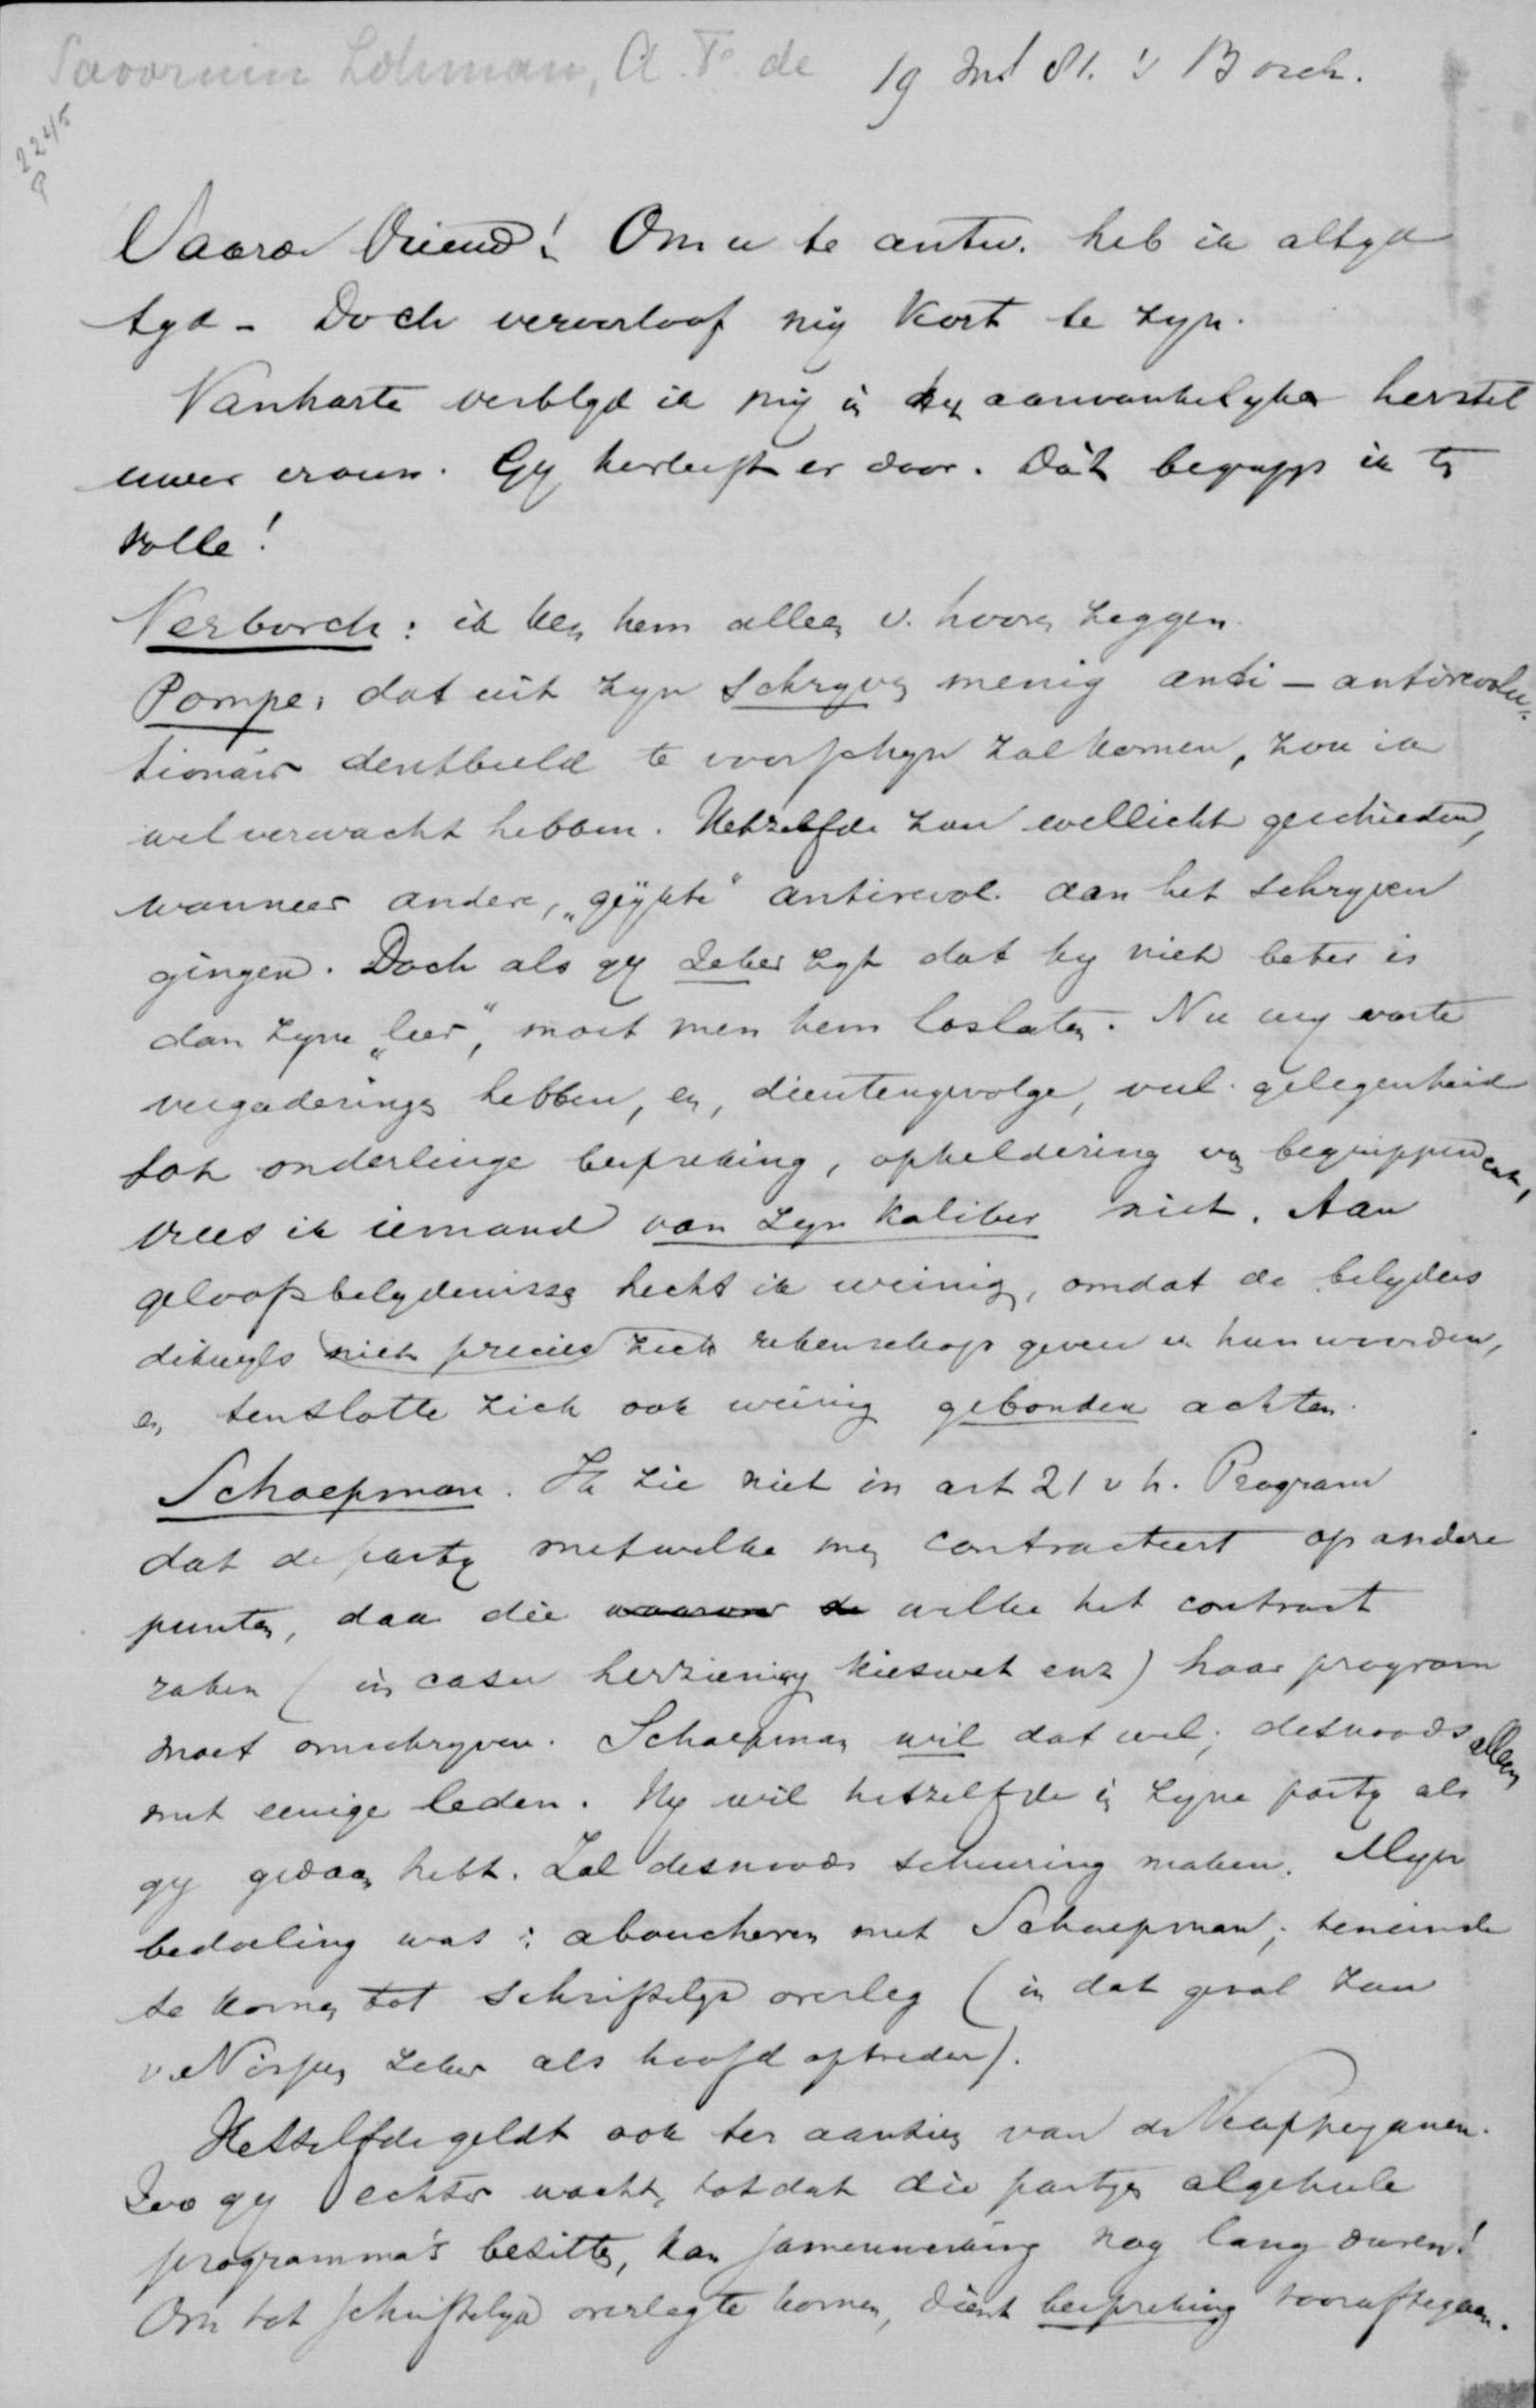 Savornin Lohman, A. F. de 19 Mrt 81. 's Bosch.
2245
P
Waarde Vriend! Om u te antw. heb ik altyd
tyd - Doch veroorloof my kort te zyn.
Van harte verblyd ik my in het aanvankelyke herstel
uwer vrouw. Gy herleeft er door. Dàt begryp ik ten
volle!
Verborch: ik ken hem alleen v. hooren zeggen.
Pompe, dat uit zyn schryven menig anti-antirevolu-
tionair denkbeeld te voorschyn zal komen, zou ik
wel verwacht hebben. Hetzelfde zou wellicht geschieden,
wanneer andere, „geykte" antirevol. aan het schryven
gingen. Doch als gy zeker zyt dat hy niet beter is
dan zyne „leer", moet men hem loslaten. Nu wy vaste
vergaderingen hebben, en, dientengevolge, veel gelegenheid
tot onderlinge bespreking, opheldering van begrippen enz,
vrees ik iemand van zyn kaliber niet. Aan
geloofsbelydenissen hecht ik weinig, omdat de belyders
dikwyls niet precies zich rekenschap geven v. hun woorden,
en tenslotte zich ook weinig gebonden achten.
Schaepman. Ik zie niet in art 21 v h. Program
dat de party met welke men contracteert op andere
punten, dan die welke het contract
raken (in casu herziening kieswet enz) haar program
moet omschryven. Schaepman wil dat wel; desnoods alleen
met eenige leden. Hy wil hetzelfde in zyne party als
gy gedaan hebt. Zal desnoods scheuring maken. Myn
bedoeling was: aboucheren met Schaepman; teneinde
te komen tot schriftelyk overleg (in dat geval zou
v. Nispen zeker als hoofd optreden).
Hetzelfde geldt ook ten aanzien van de Kappeyanen.
Zoo gy echter wacht, totdat die partyen algeheele
programma's bezitten, kan samenwerking nog lang duren!
Om tot schriftelyk overleg te komen, dient bespreking vooraf te gaan.